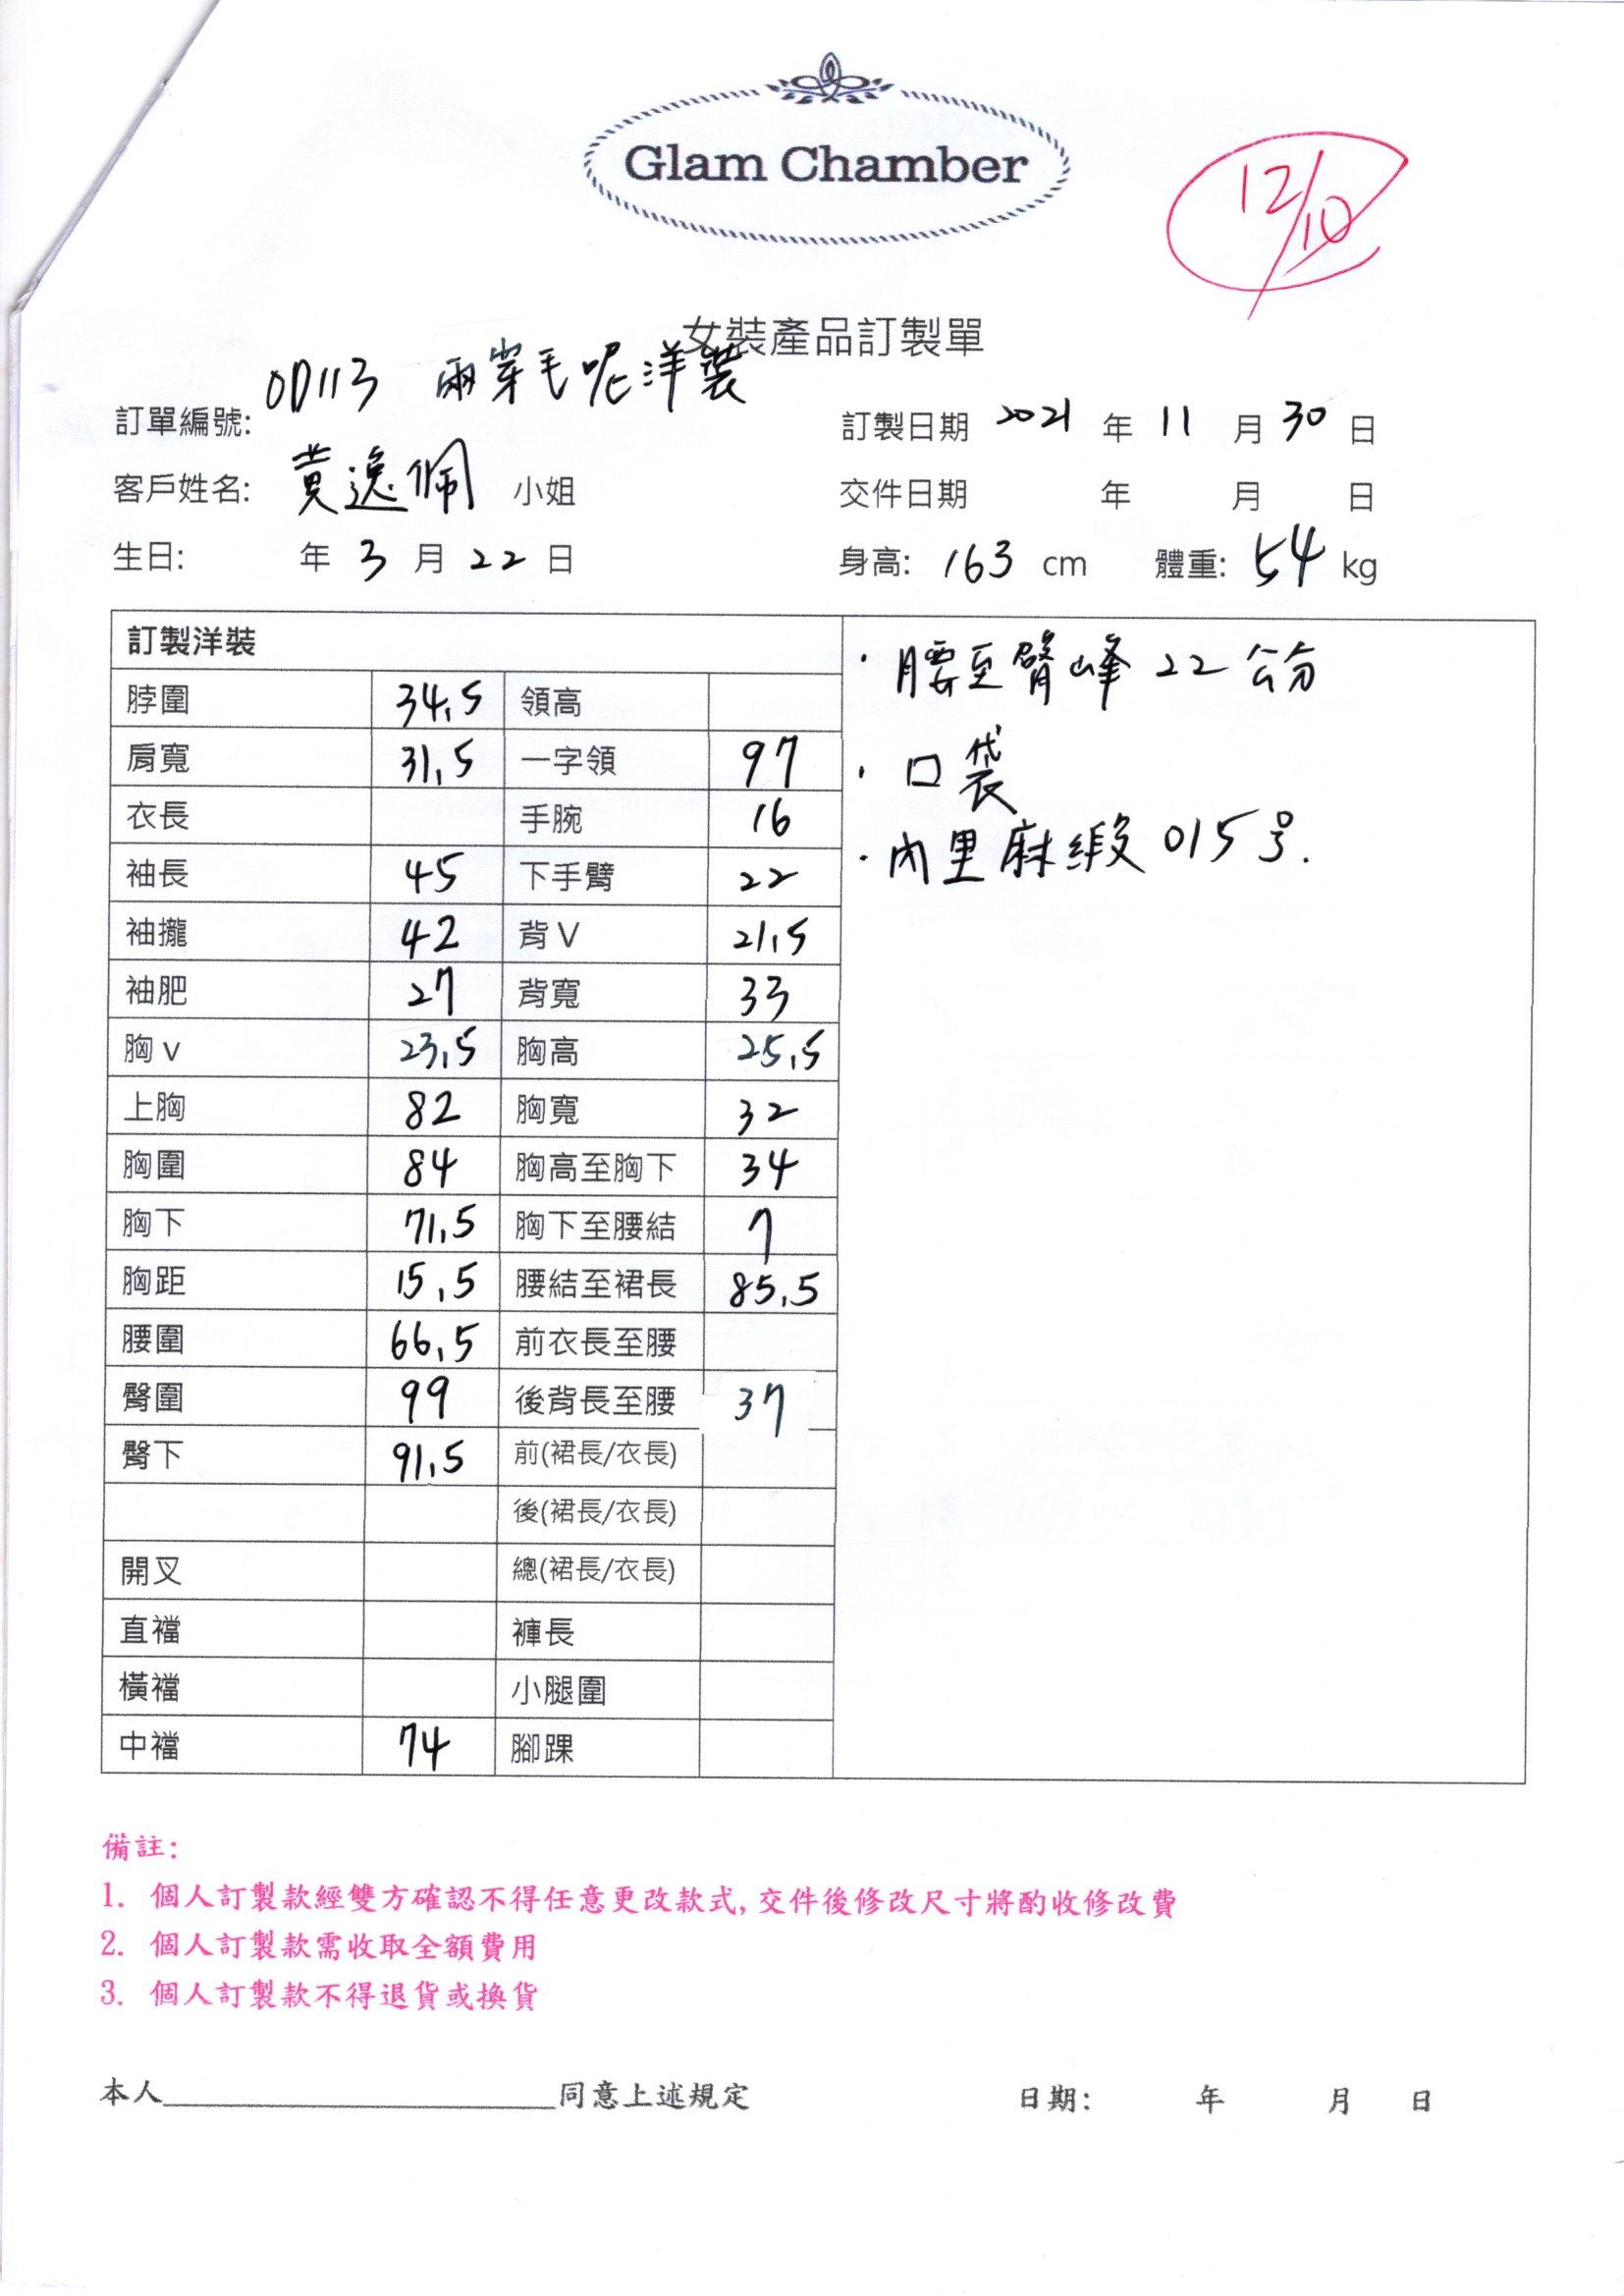 Glam Chamber
12/10
女裝產品訂製單
訂單編號: OD113 兩穿毛呢洋裝
訂製日期 2021 年 11 月 30 日
客戶姓名: 黃逸佩 小姐
交件日期 年 月 日
生日: 年 3 月 22 日
身高: 163 cm 體重: 54 kg
訂製洋裝
脖圍 34.5 領高
肩寬 31.5 一字領 97
衣長 手腕 16
袖長 45 下手臂 22
袖攏 42 背V 21.5
袖肥 27 背寬 33
胸v 23.5 胸高 25.5
上胸 82 胸寬 32
胸圍 84 胸高至胸下 34
胸下 71.5 胸下至腰結 7
胸距 15.5 腰結至裙長 85.5
腰圍 66.5 前衣長至腰
臀圍 99 後背長至腰 37
臀下 91.5 前(裙長/衣長)
後(裙長/衣長)
開叉 總(裙長/衣長)
直襠 褲長
橫襠 小腿圍
中襠 74 腳踝
· 腰至臀峰 22 公分
· 口袋
· 內里麻緞 015号.
備註:
1. 個人訂製款經雙方確認不得任意更改款式, 交件後修改尺寸將酌收修改費
2. 個人訂製款需收取全額費用
3. 個人訂製款不得退貨或換貨
本人____________________同意上述規定 日期: 年 月 日